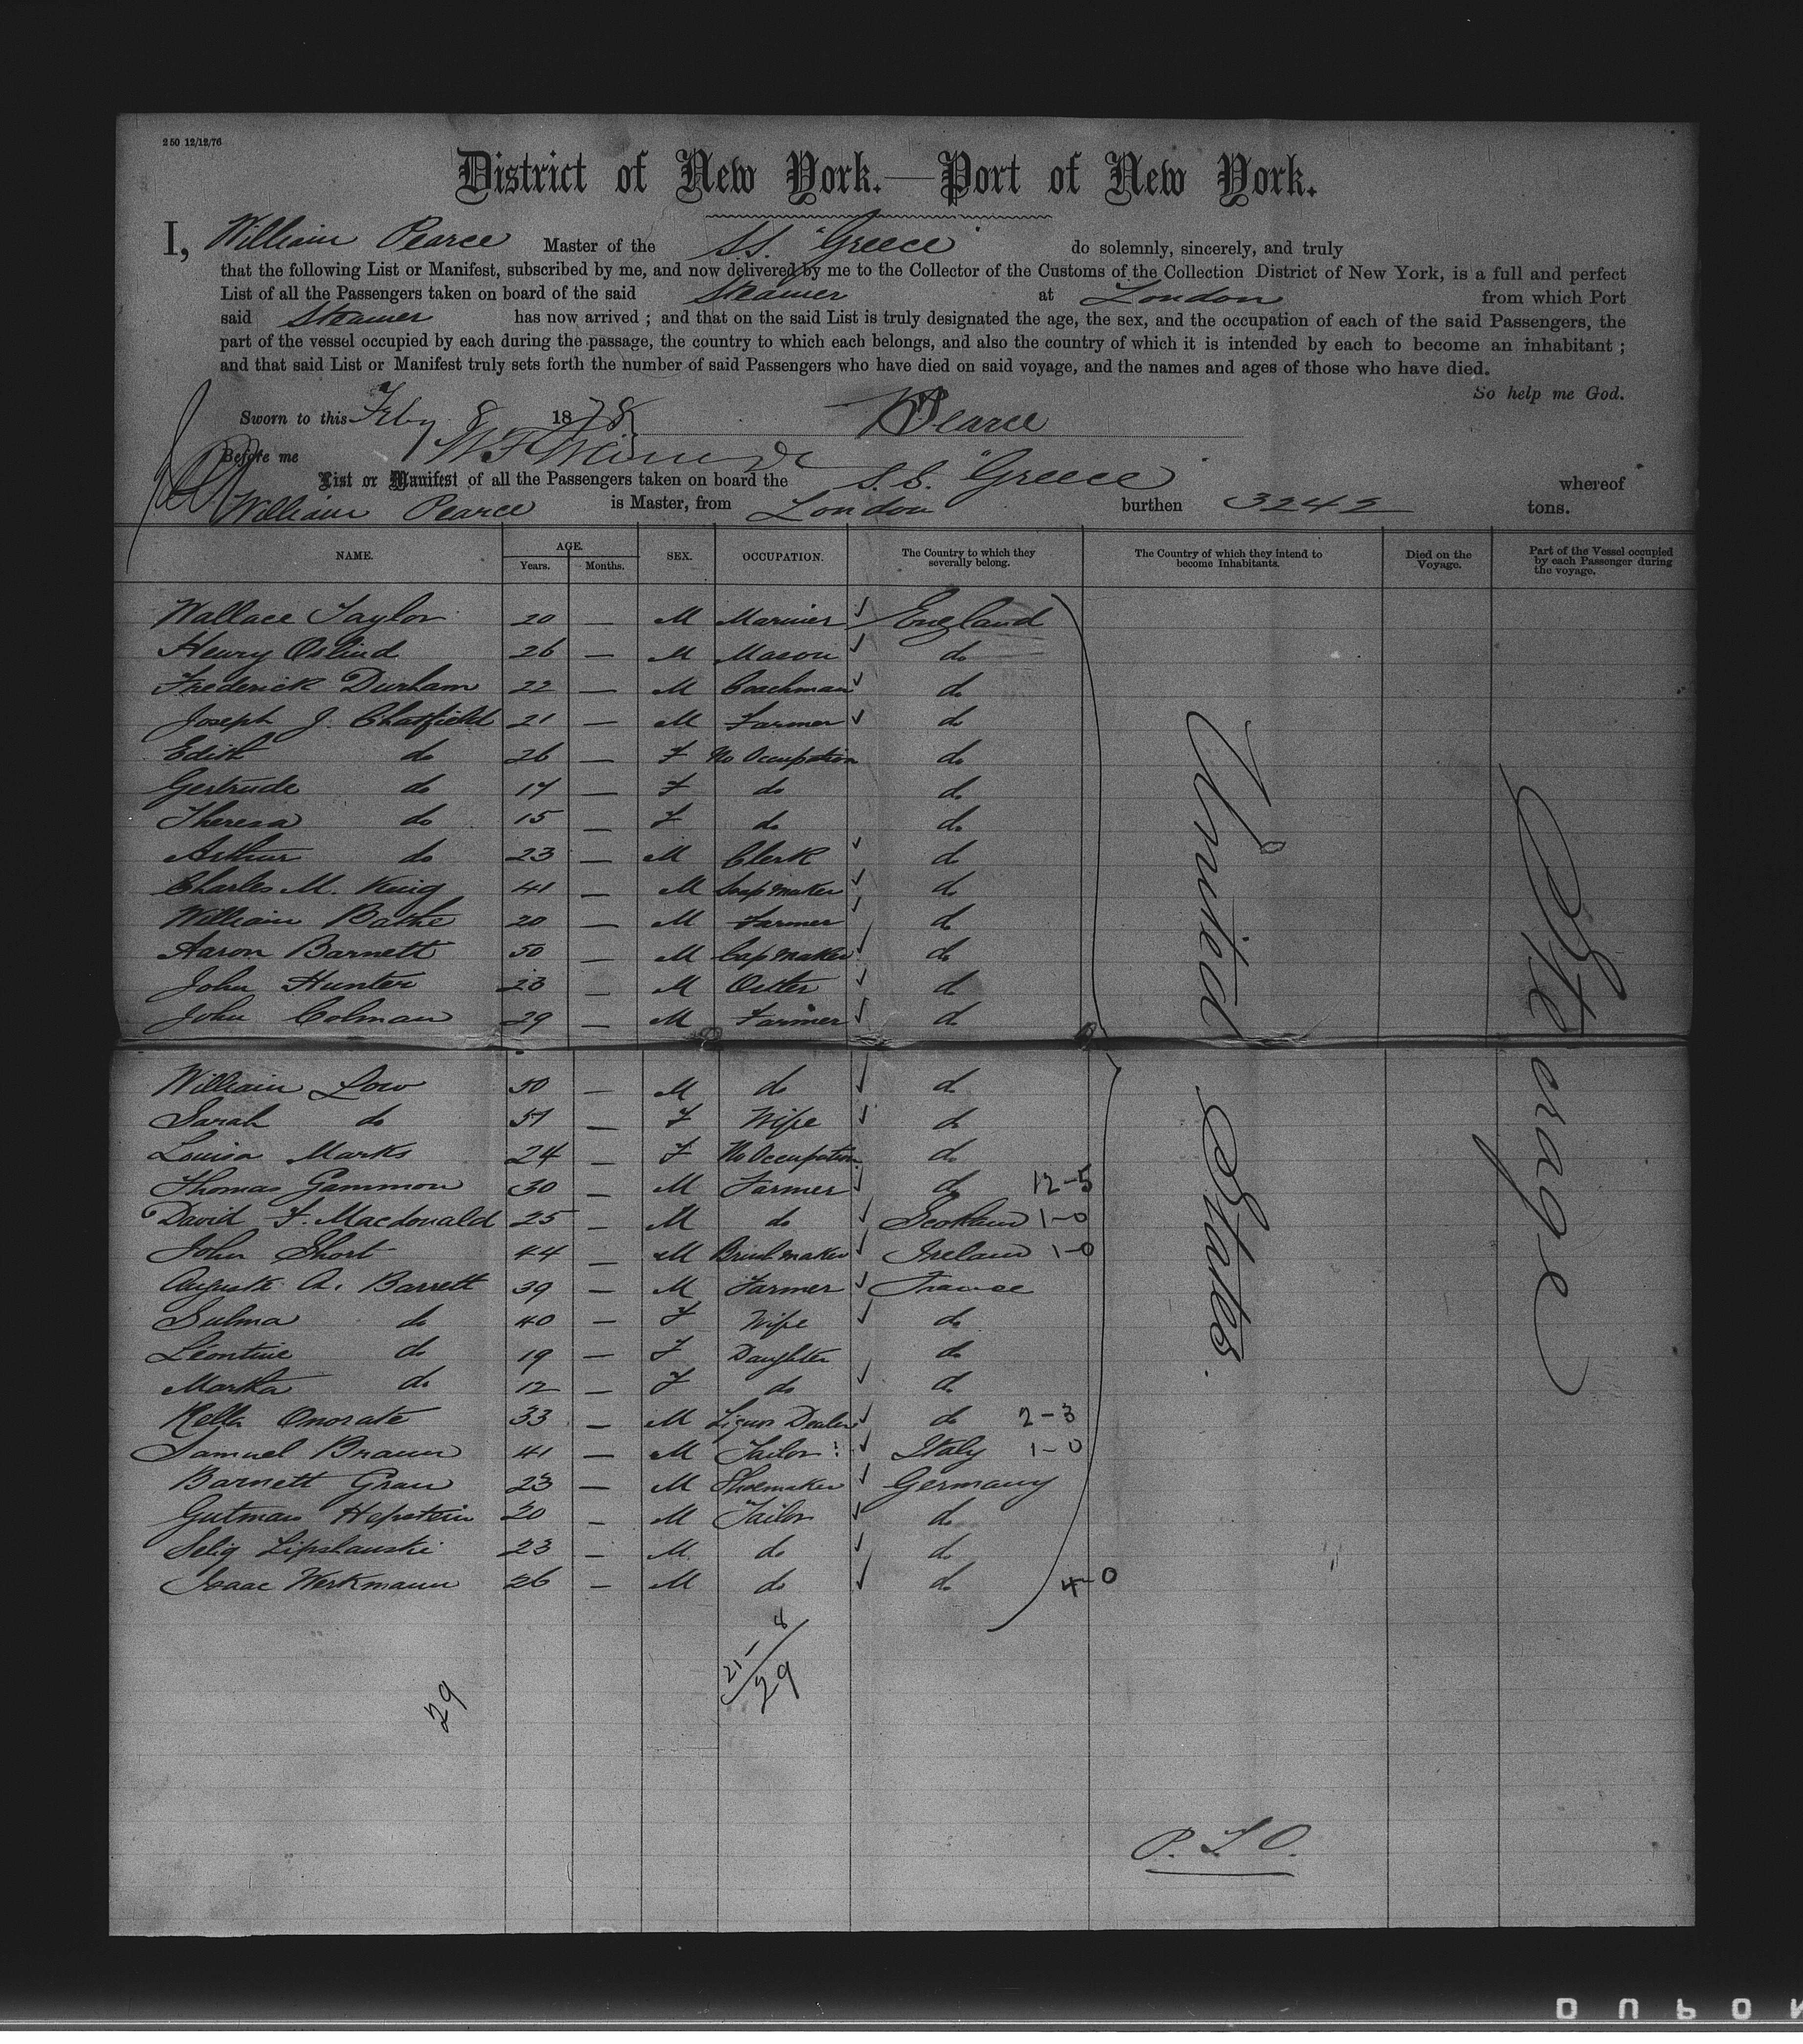 250 12/12/76
District of New York.—Port of New York.
I, William Pearce Master of the S.S. "Greece" do solemnly, sincerely, and truly
that the following List or Manifest, subscribed by me, and now delivered by me to the Collector of the Customs of the Collection District of New York, is a full and perfect
List of all the Passengers taken on board of the said Steamer at London from which Port
said Steamer has now arrived ; and that on the said List is truly designated the age, the sex, and the occupation of each of the said Passengers, the
part of the vessel occupied by each during the passage, the country to which each belongs, and also the country of which it is intended by each to become an inhabitant ;
and that said List or Manifest truly sets forth the number of said Passengers who have died on said voyage, and the names and ages of those who have died.
So help me God.
Sworn to this Feby 8 1878 W Pearce
Before me
List or Manifest of all the Passengers taken on board the S.S. "Greece" whereof
William Pearce is Master, from London burthen 3242 tons.
NAME. AGE. SEX. OCCUPATION. The Country to which they severally belong. The Country of which they intend to become Inhabitants. Died on the Voyage. Part of the Vessel occupied by each Passenger during the voyage.
Years. Months.
Wallace Taylor 20 — M Mariner ✓ England
Henry Oslind 26 — M Mason ✓ do
Frederick Durham 22 — M Coachman ✓ do
Joseph J. Chatfield 21 — M Farmer ✓ do
Edith do 26 — F No Occupation do
Gertrude do 17 — F do do
Theresa do 15 — F do do
Arthur do 23 — M Clerk ✓ do
Charles M. King 41 — M Soap maker ✓ do
William Bathe 20 — M Farmer ✓ do
Aaron Barnett 50 — M Cap maker ✓ do
John Hunter 23 — M Ostler ✓ do
John Colman 29 — M Farmer ✓ do
William Low 50 — M do ✓ do
Sarah do 57 — F Wife ✓ do
Louisa Marks 24 — F No Occupation do
Thomas Gammon 30 — M Farmer ✓ do 12-5
David F. Macdonald 25 — M do ✓ Scotland 1-0
John Short 44 — M Brickmaker ✓ Ireland 1-0
Auguste A. Barrett 39 — M Farmer ✓ France
Sulma do 40 — F Wife ✓ do
Léontine do 19 — F Daughter do
Martha do 12 — F do ✓ do
Onorate 33 — M Liquor Dealer ✓ do 2-3
Samuel Braun 41 — M Tailor ✓ Italy 1-0
Barnett Grau 23 — M Shoemaker ✓ Germany
Gutman Hepstein 20 — M Tailor ✓ do
Selig Lipshauski 23 — M do ✓ do
Isaac Werkmann 26 — M do ✓ do 4-0
United States.
Steerage
21-8
29
29
P.T.O.
DUPON